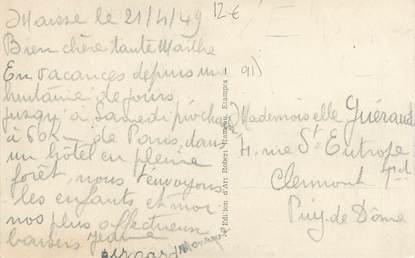 Maisse le 21/4/49
12€
Bien chère tante Marthe
En vacances depuis une
huitaine de jours
jusqu'à Samedi prochain
à 60 km de Paris, dans
un hôtel en pleine
forêt, nous t'envoyons
les enfants et moi
nos plus affectueux
baisers Jeanne
91)
Mademoiselle Guéraud
rue St Eutrope
Clermont Fd
Puy de Dôme
Edition d'Art Robert Etampes